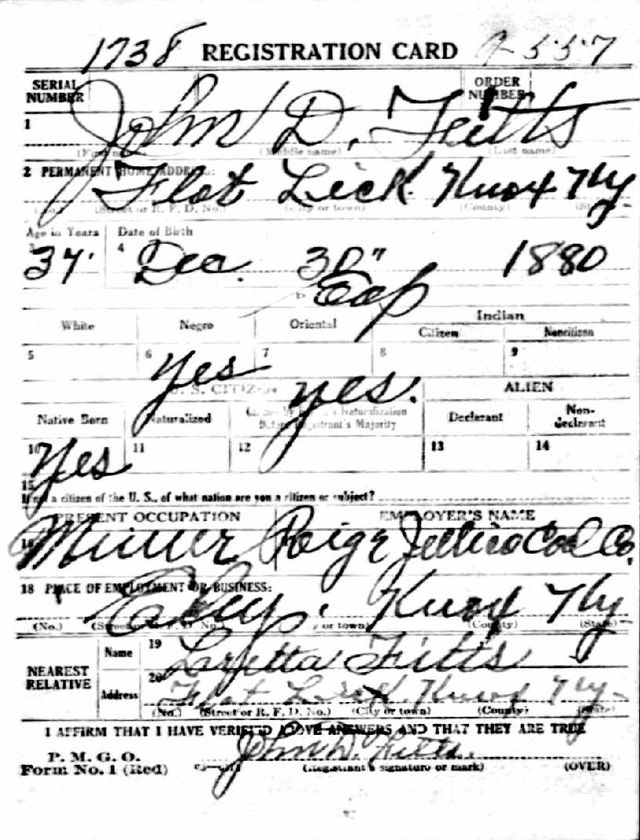 1738 REGISTRATION CARD A-557
SERIAL NUMBER ORDER NUMBER
1 John D. Fitts
(First name) (Middle name) (Last name)
2 PERMANENT HOME ADDRESS:
Flat Lick Knox Ky
(No.) (Street or R. F. D. No.) (City or town) (County) (State)
Age in Years Date of Birth
3 37 4 Dec. 30" 1880
White Negro Oriental Indian
Citizen Noncitizen
5 6 yes 7 yes. 8 9
U. S. CITIZEN ALIEN
Native Born Naturalized Citizen by Father's Naturalization Before Registrant's Majority Declarant Non-declarant
10 Yes 11 12 13 14
15
If not a citizen of the U. S., of what nation are you a citizen or subject?
PRESENT OCCUPATION EMPLOYER'S NAME
16 Miner Jellico Coal Co.
18 PLACE OF EMPLOYMENT OR BUSINESS:
Knox Ky
(No.) (Street or R. F. D. No.) (City or town) (County) (State)
NEAREST RELATIVE
Name 19 Loretta Fitts
Address 20 Flat Lick Knox Ky
(No.) (Street or R. F. D. No.) (City or town) (County) (State)
I AFFIRM THAT I HAVE VERIFIED ABOVE ANSWERS AND THAT THEY ARE TRUE
P. M. G. O.
Form No. 1 (Red) John D. Fitts.
(Registrant's signature or mark) (OVER)